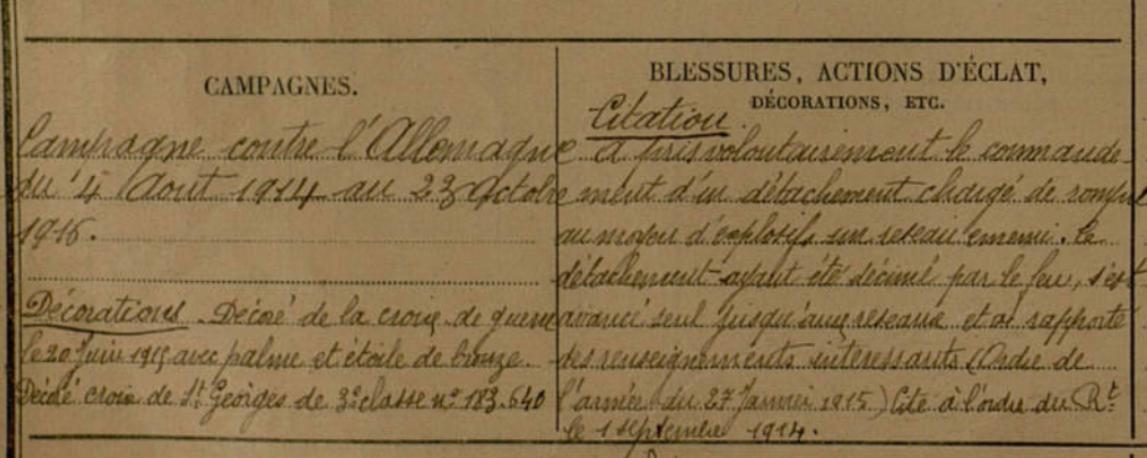 CAMPAGNES.
Campagne contre l'Allemagne
du 4 Aout 1914 au 23 Octobre
1916.
Décorations. Décoré de la croix de guerre
le 20 Juin 1915 avec palme et étoile de bronze.
Décoré croix de St Georges de 3e classe no 183.640
BLESSURES, ACTIONS D'ÉCLAT,
DÉCORATIONS, ETC.
Citation.
a pris volontairement le commande-
ment d'un détachement chargé de rompre
au moyen d'explosifs un reseau ennemi. le
détachement ayant été décimé par le feu, s'est
avancé seul jusqu'aux réseaux et a rapporté
des renseignements intéressants (Ordre de
l'armée du 27 Janvier 1915) Cité à l'ordre du Rt
le 1 septembre 1914.